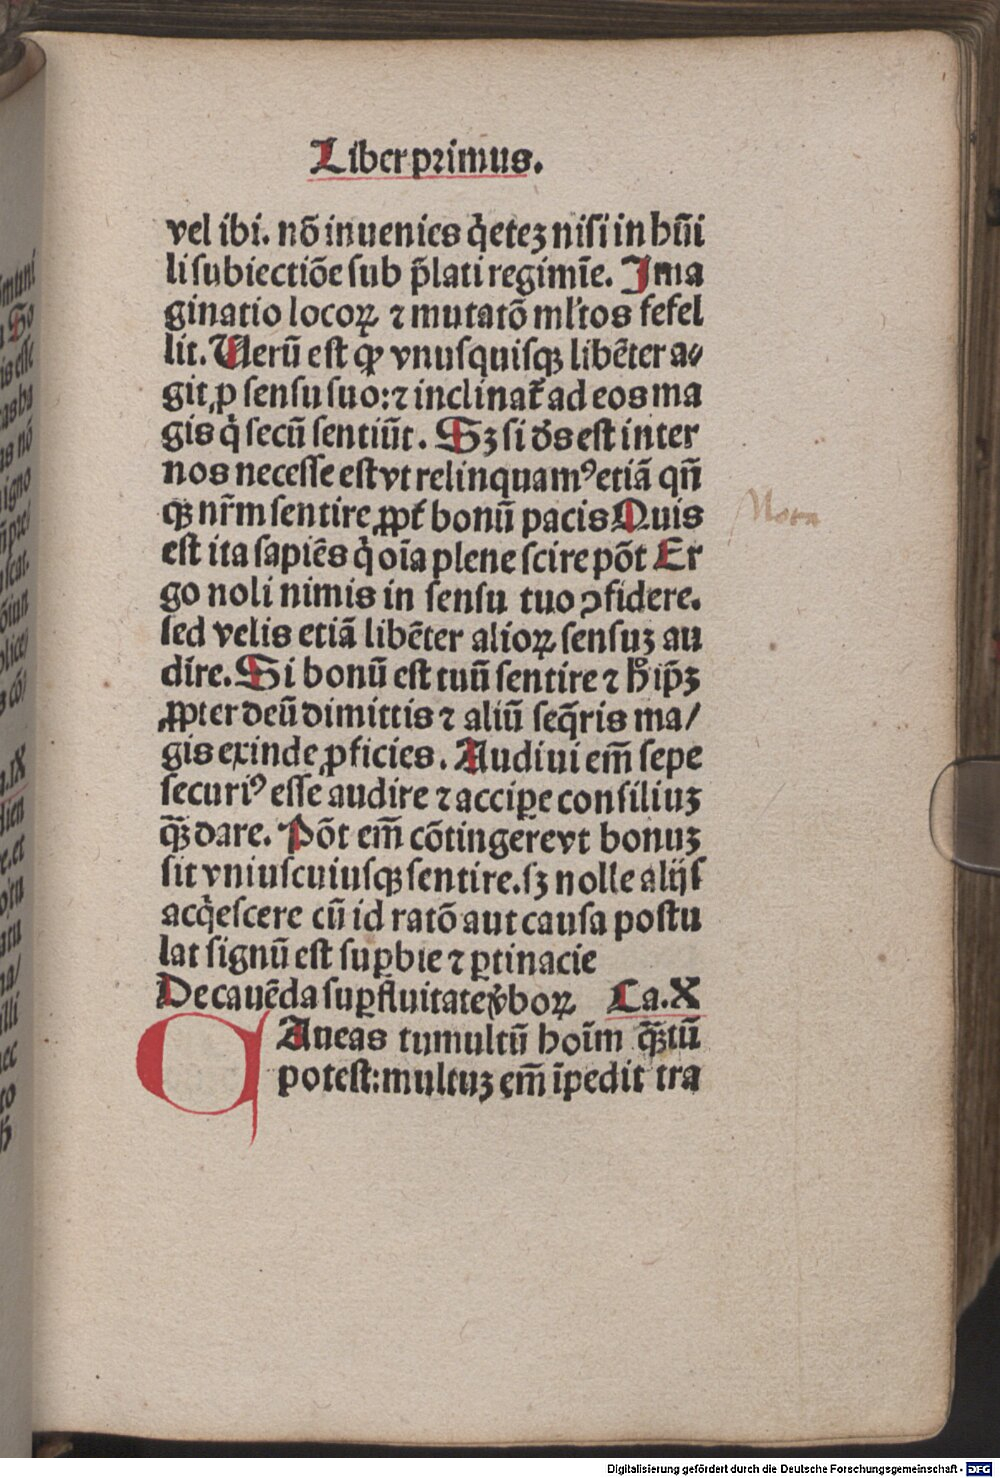 Liber primus.
vel ibi. nō inuenies q̇etez nisi in hūi
li subiectiōe sub p̄lati regimīe. Ima
ginatio locoꝝ ⁊ mutatō ml'tos fefel
lit. Uerū est ꝙ vnusquisqꝫ libēter a⸗
git ꝓ sensu suo:⁊ inclinat̄ ad eos ma
gis q̇ secū sentiūt. Sꝫ si ds̄ est inter
nos necesse est vt relinquamꝰ etiā qn̄
qꝫ nr̄m sentire ꝓpt̄ bonū pacis Quis
est ita sapiēs q̇ oīa plene scire pōt Er
go noli nimis in sensu tuo ꝯfidere.
sed velis etiā libēter alioꝝ sensuꝫ au
dire. Si bonū est tuū sentire ⁊ h̄ ip̄ꝫ
ꝓpter deū dimittis ⁊ aliū seq̄ris ma/
gis exinde ꝓficies. Audiui em̄ sepe
securiꝰ esse audire ⁊ accipe consiliuꝫ
qꝫ̄ dare. Pōt em̄ cōtingere vt bonuꝫ
sit vniuscuiusqꝫ sentire. sꝫ nolle alijs
acq̇escere cū id ratō aut causa postu
lat signū est suꝑbie ⁊ ꝑtinacie
De cauēda suꝑfluitate v̄boꝝ Ca.X
CAueas tumultū hoīm qꝫ̄tū
potest: multuꝫ em̄ īpedit tra
Nota
Digitalisierung gefördert durch die Deutsche Forschungsgemeinschaft - DFG